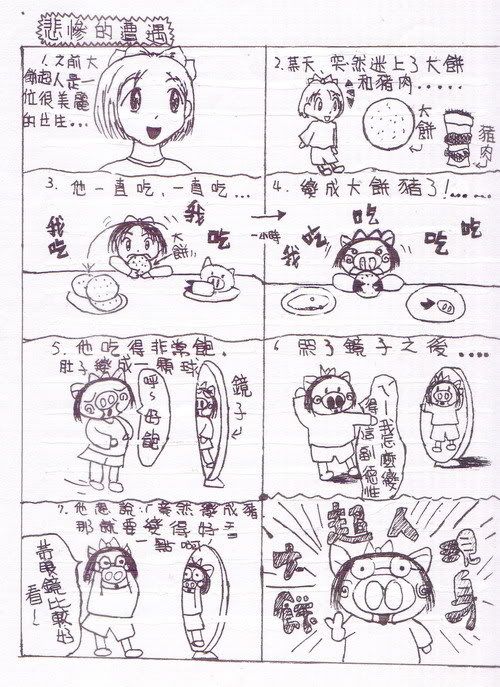 悲慘的遭遇
1.之前大
餅超人是一
位很美麗
的女生...
2.某天,突然迷上了大餅
和豬肉.....
大餅
豬肉
3.他一直吃,一直吃...
我吃
我吃
大餅
一小時
4.變成大餅豬了!......
我吃
吃
吃
吃
5.他吃得非常飽,
肚子變成一顆球
嗯~好飽
鏡子
6.照了鏡子之後....
ㄟ!我怎麼變
得這副德性
7.他想說:竟然變成豬
那就要變得好看
一點啊
戴眼鏡比較好
看!
大餅
超人現
身